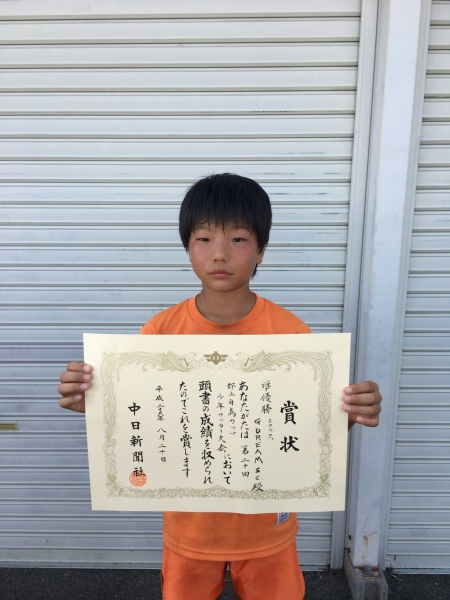 賞状
準優勝
G DREAM SC殿
あなたがたは 第二十回
郡上白鳥カップ
少年サッカー大会において
頭書の成績を収められ
たのでこれを賞します
八月二十日
中日新聞社